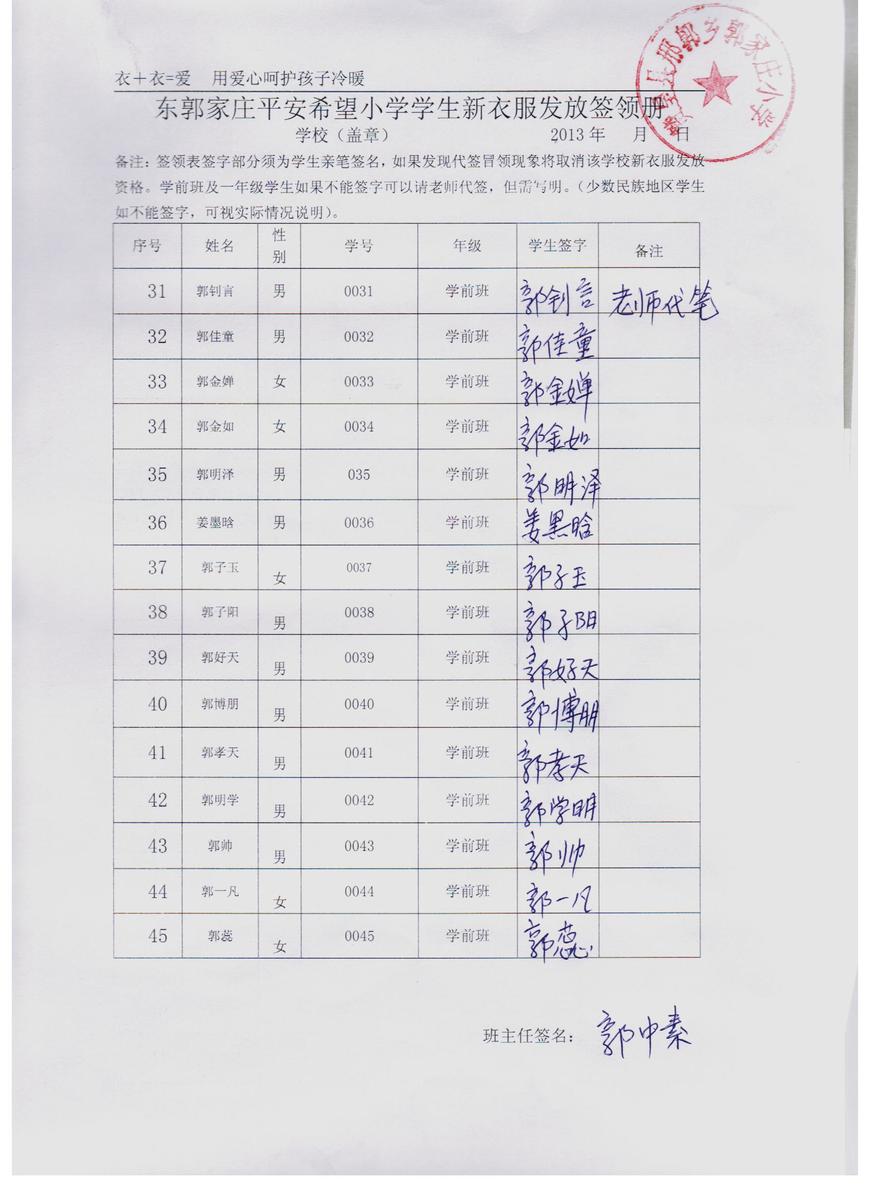 衣+衣=爱 用爱心呵护孩子冷暖
东郭家庄平安希望小学学生新衣服发放签领册
学校（盖章） 2013 年 月 日
备注：签领表签字部分须为学生亲笔签名，如果发现代签冒领现象将取消该学校新衣服发放
资格。学前班及一年级学生如果不能签字可以请老师代签，但需写明。（少数民族地区学生
如不能签字，可视实际情况说明）。
序号 姓名 性别 学号 年级 学生签字 备注
31 郭钊言 男 0031 学前班 郭钊言 老师代笔
32 郭佳童 男 0032 学前班 郭佳童
33 郭金婵 女 0033 学前班 郭金婵
34 郭金如 女 0034 学前班 郭金如
35 郭明泽 男 035 学前班 郭明泽
36 姜墨晗 男 0036 学前班 姜黑晗
37 郭子玉 女 0037 学前班 郭子玉
38 郭子阳 男 0038 学前班 郭子阳
39 郭好天 男 0039 学前班 郭好天
40 郭博朋 男 0040 学前班 郭博朋
41 郭孝天 男 0041 学前班 郭孝天
42 郭明学 男 0042 学前班 郭学明
43 郭帅 男 0043 学前班 郭帅
44 郭一凡 女 0044 学前班 郭一凡
45 郭蕊 女 0045 学前班 郭蕊
班主任签名： 郭中素
县邢郭乡郭家庄小学